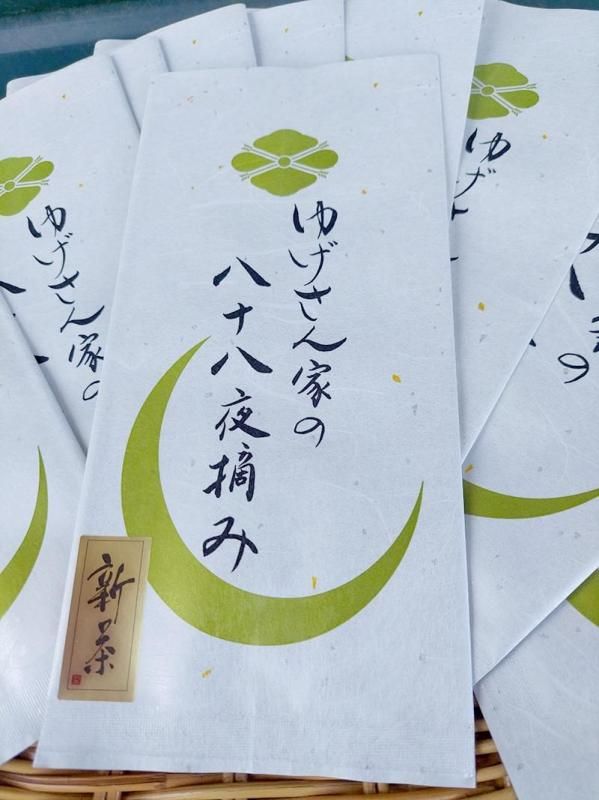 ゆげさん家の
八十八夜摘み
新茶
ゆげさん家の
ゆげ
の